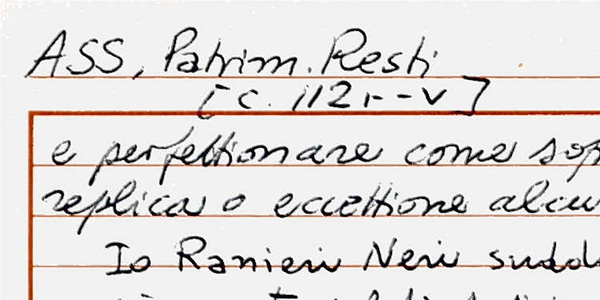 ASS, Patrim. Resti
[c. 112r-v]
e perfettionare come
replica o eccettione
Io Ranieri Neri